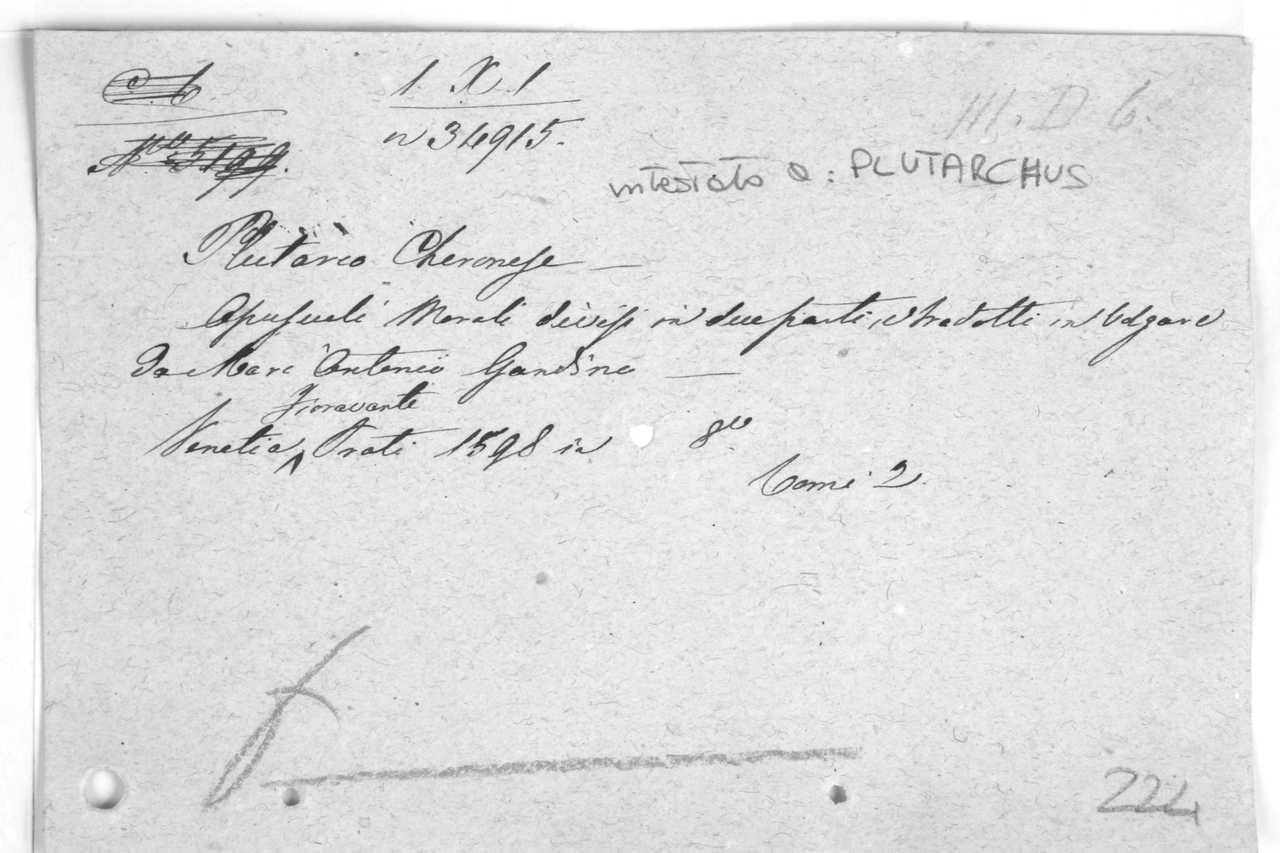 1. X. 1
n 34915.
III. D 6.
intestato a: PLUTARCHUS
Plutarco Cheronese —
Opuscoli Morali divisi in due parti, e tradotti in Volgare
da Marc'Antonio Gandino —
Fioravante
Venetia, Prati 1598 in 8vo
Tomi 2.
224